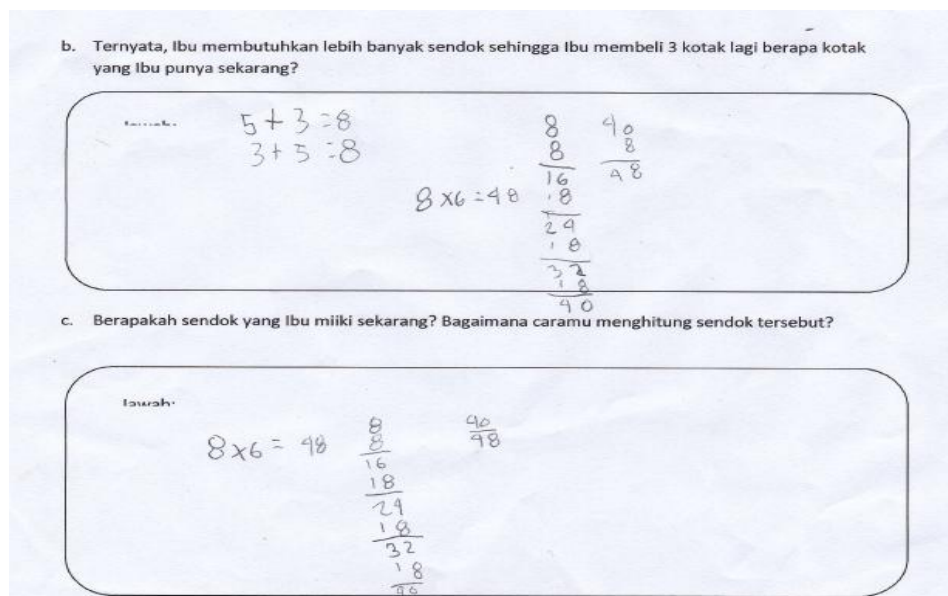 b. Ternyata, Ibu membutuhkan lebih banyak sendok sehingga Ibu membeli 3 kotak lagi berapa kotak
yang Ibu punya sekarang?
5 + 3 = 8
3 + 5 = 8
8 x 6 = 48
8
8
16
18
24
18
32
18
40
40
8
48
c. Berapakah sendok yang Ibu miiki sekarang? Bagaimana caramu menghitung sendok tersebut?
Jawab:
8 x 6 = 48
8
8
16
18
24
18
32
18
40
40
48